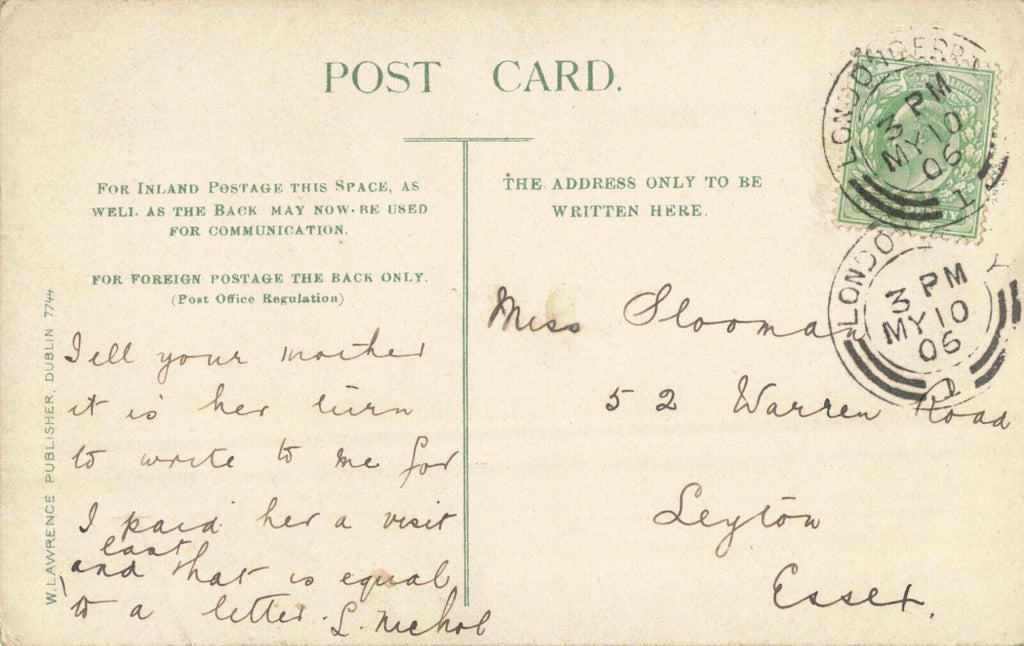 POST CARD.
FOR INLAND POSTAGE THIS SPACE, AS
WELL AS THE BACK MAY NOW BE USED
FOR COMMUNICATION.
FOR FOREIGN POSTAGE THE BACK ONLY.
(Post Office Regulation)
THE ADDRESS ONLY TO BE
WRITTEN HERE.
W. LAWRENCE PUBLISHER, DUBLIN 7744
Tell your mother
it is her turn
to write to me for
I paid her a visit
last
and that is equal
to a letter. L. Nichol
Miss Slooman
52 Warren Road
Leyton
Essex.
LONDONDERRY
3 PM
MY 10
06
1
LONDO Y
3 PM
MY 10
06
1